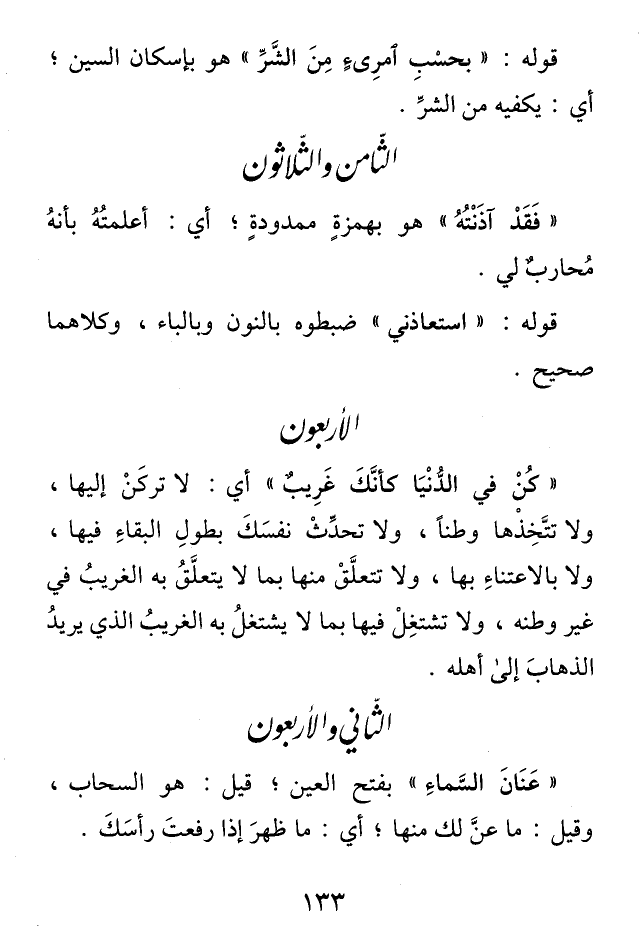 قوله : « بحسْبِ ٱمرِىءٍ مِنَ الشَّرِّ » هو بإسكان السين ؛
أي : يكفيه من الشرِّ .
الثّامن والثّلاثون
« فَقَدْ آذَنْتُهُ » هو بهمزةٍ ممدودةٍ ؛ أي : أعلمتُهُ بأنهُ
مُحاربٌ لي .
قوله : « استعاذني » ضبطوه بالنون وبالباء ، وكلاهما
صحيح .
الأربعون
« كُنْ في الدُّنْيَا كأنَّكَ غَرِيبٌ » أي : لا تركَنْ إليها ،
ولا تتَّخِذْها وطناً ، ولا تحدِّثْ نفسَكَ بطولِ البقاءِ فيها ،
ولا بالاعتناءِ بها ، ولا تتعلَّقْ منها بما لا يتعلَّقُ به الغريبُ في
غير وطنه ، ولا تشتغِلْ فيها بما لا يشتغلُ به الغريبُ الذي يريدُ
الذهابَ إلىٰ أهله .
الثّاني والأربعون
« عَنَانَ السَّماءِ » بفتح العين ؛ قيل : هو السحاب ،
وقيل : ما عنَّ لك منها ؛ أي : ما ظهرَ إذا رفعتَ رأسَكَ .
١٣٣